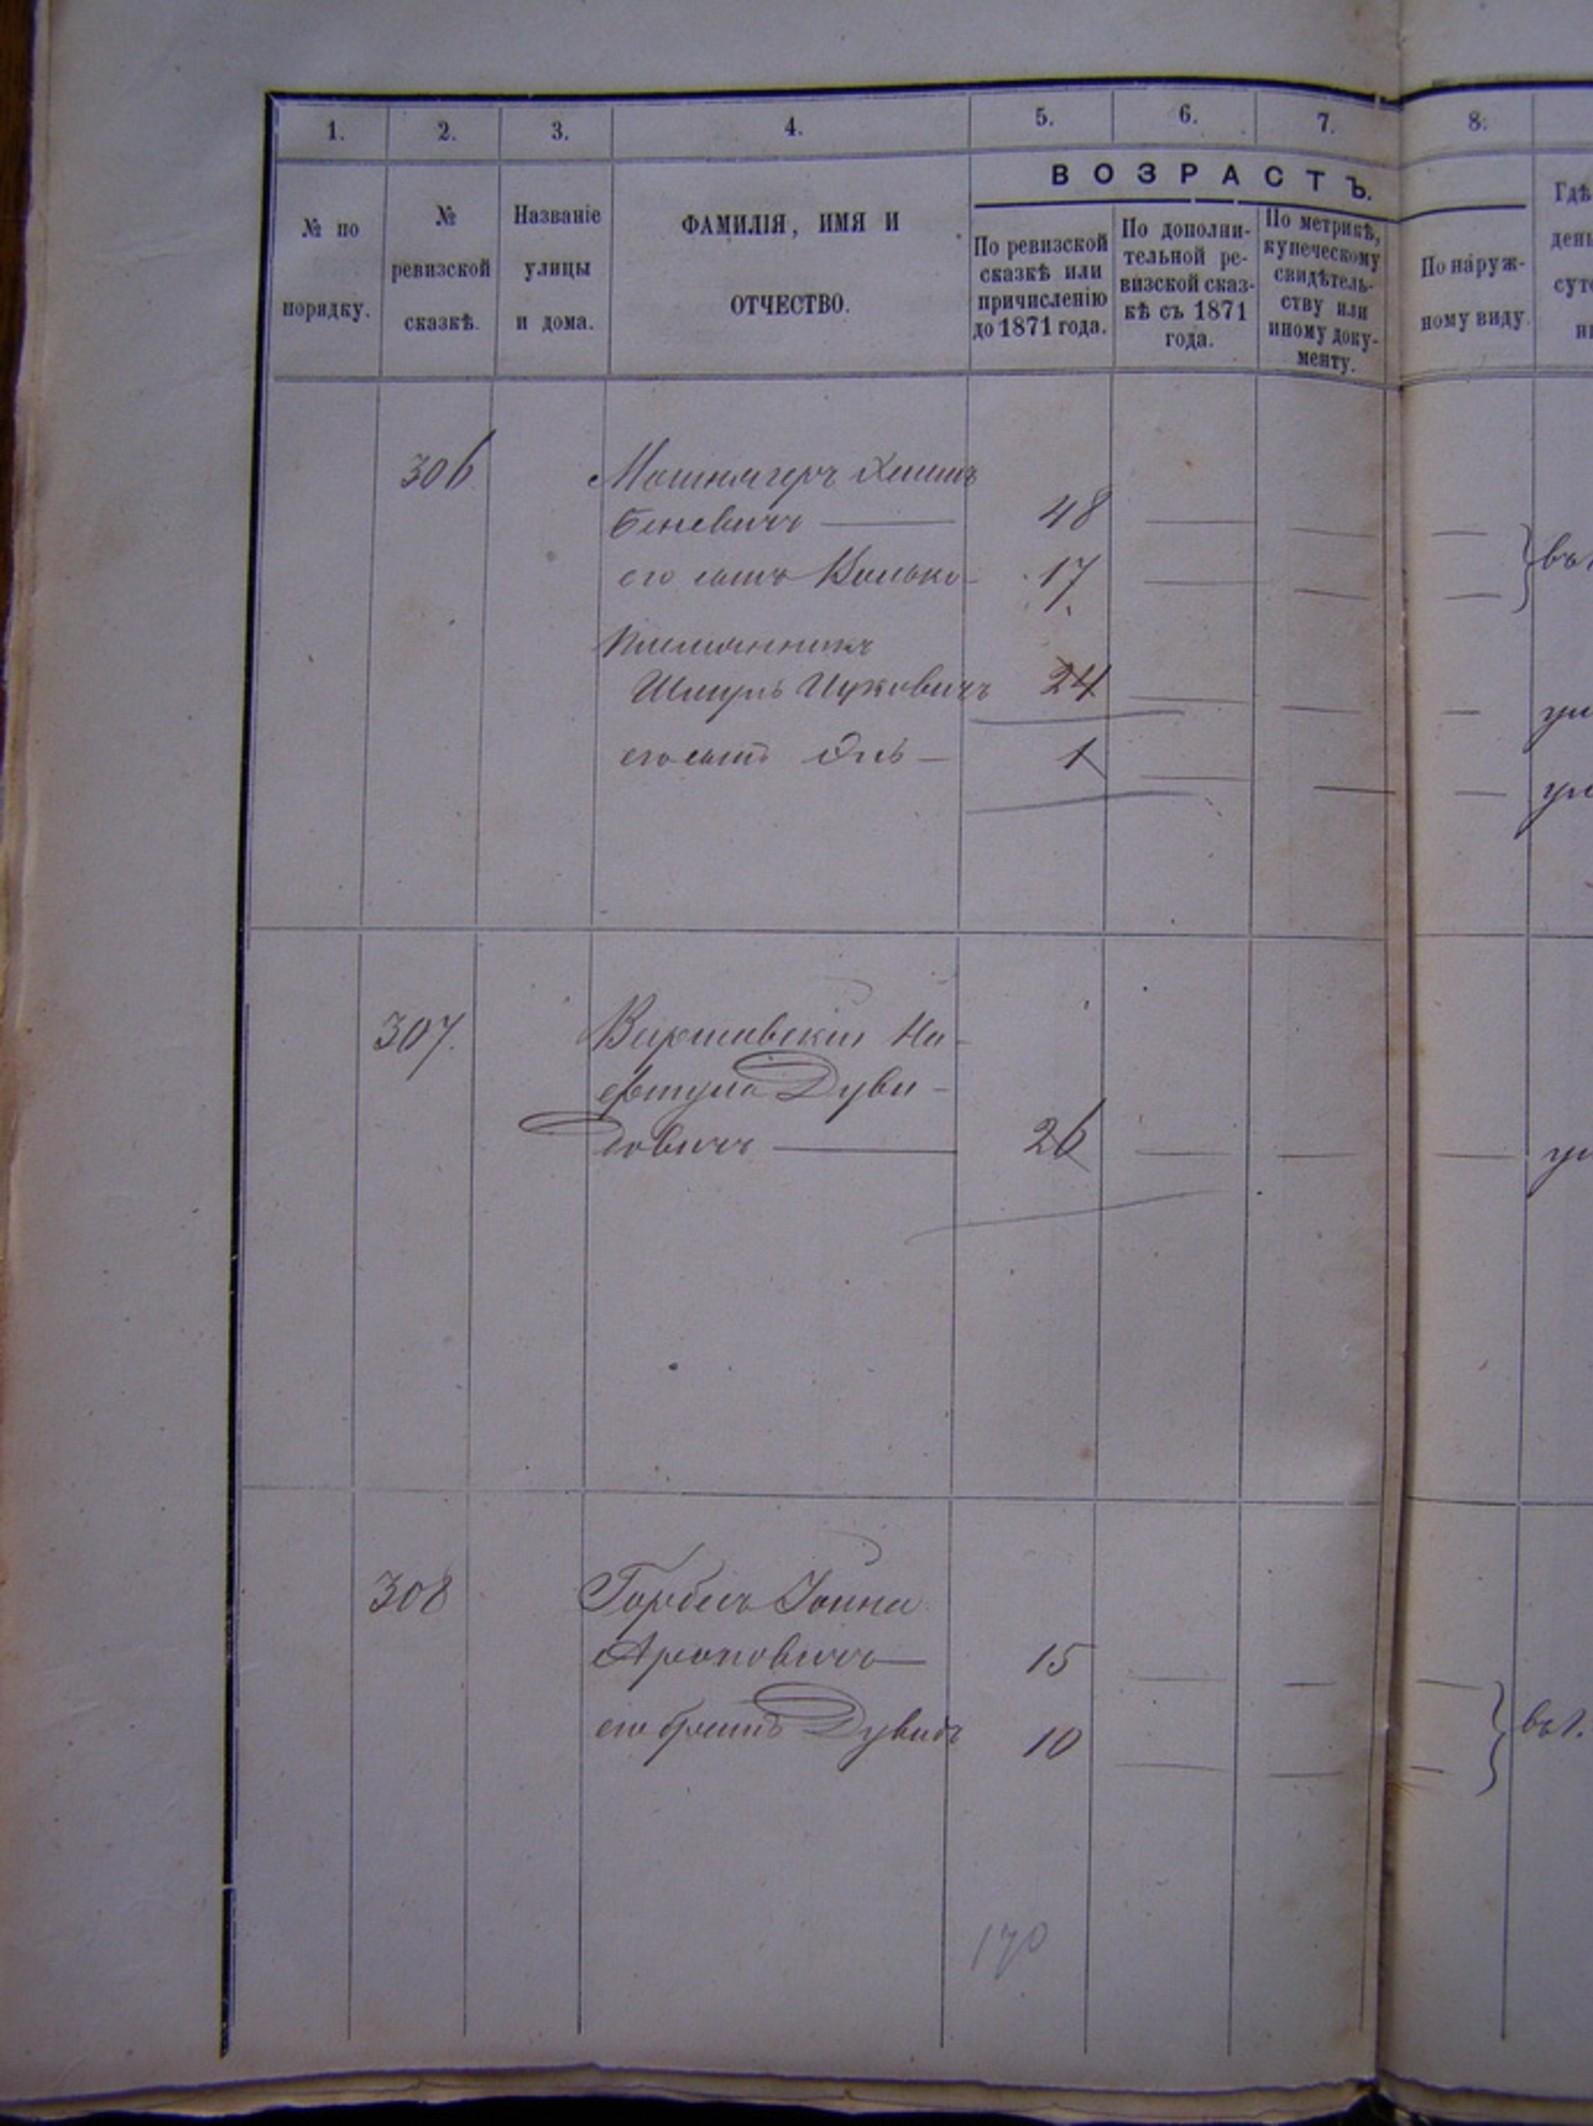 1. 2. 3. 4. 5. 6. 7. 8.
№ по порядку.
№ ревизской сказкѣ.
Названіе улицы и дома.
ФАМИЛІЯ, ИМЯ И ОТЧЕСТВО.
ВОЗРАСТЪ.
По ревизской сказкѣ или причисленію до 1871 года.
По дополни-тельной ре-визской сказ-кѣ съ 1871 года.
По метрикѣ, купеческому свидѣтель-ству или иному доку-менту.
По наруж-ному виду.
Гдѣ
день
306
Беневичъ — 48
его сынъ Волько - 17
Племянникъ
Шмуль Ицковичъ 24
его сынъ — 1
307.
Варшавскій На-
фтула Дуви-
довичъ — 26
308
Іонна
Ароновичъ — 15
его братъ Дувидъ 10
170